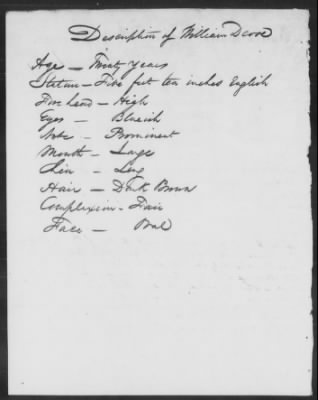 Description of William Dcove
Age — Twenty years
Stature — Five feet ten inches English
Fore head — High
Eyes — Blueish
Nose — Prominent
Mouth — Large
Chin — Long
Hair — Dark Brown
Complexion — Fair
Face — Oval